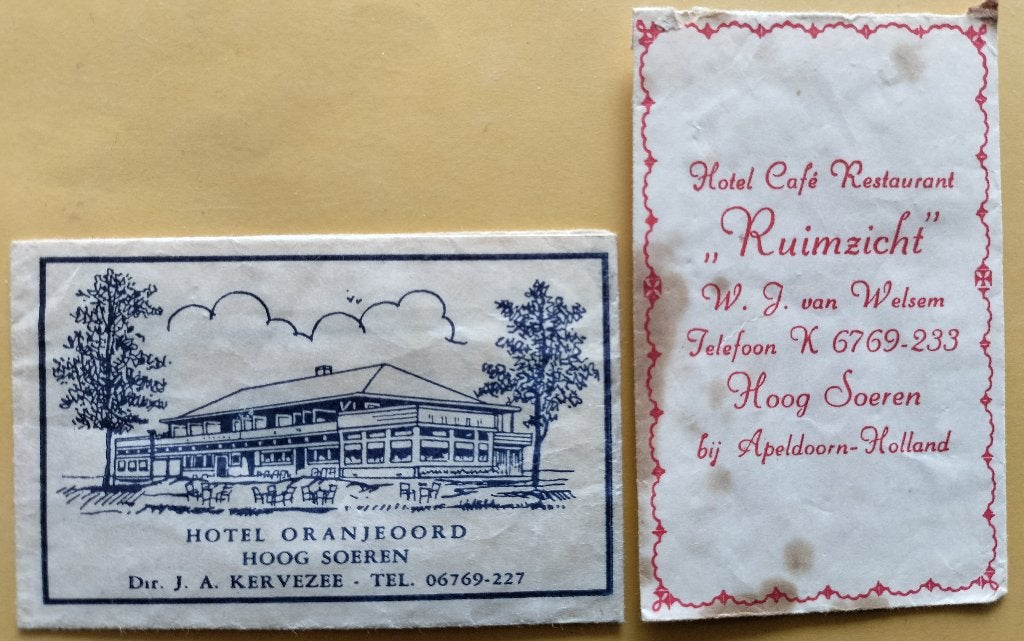 HOTEL ORANJEOORD
HOOG SOEREN
Dir. J. A. KERVEZEE - TEL. 06769-227
Hotel Café Restaurant
„Ruimzicht”
W. J. van Welsem
Telefoon K 6769-233
Hoog Soeren
bij Apeldoorn-Holland